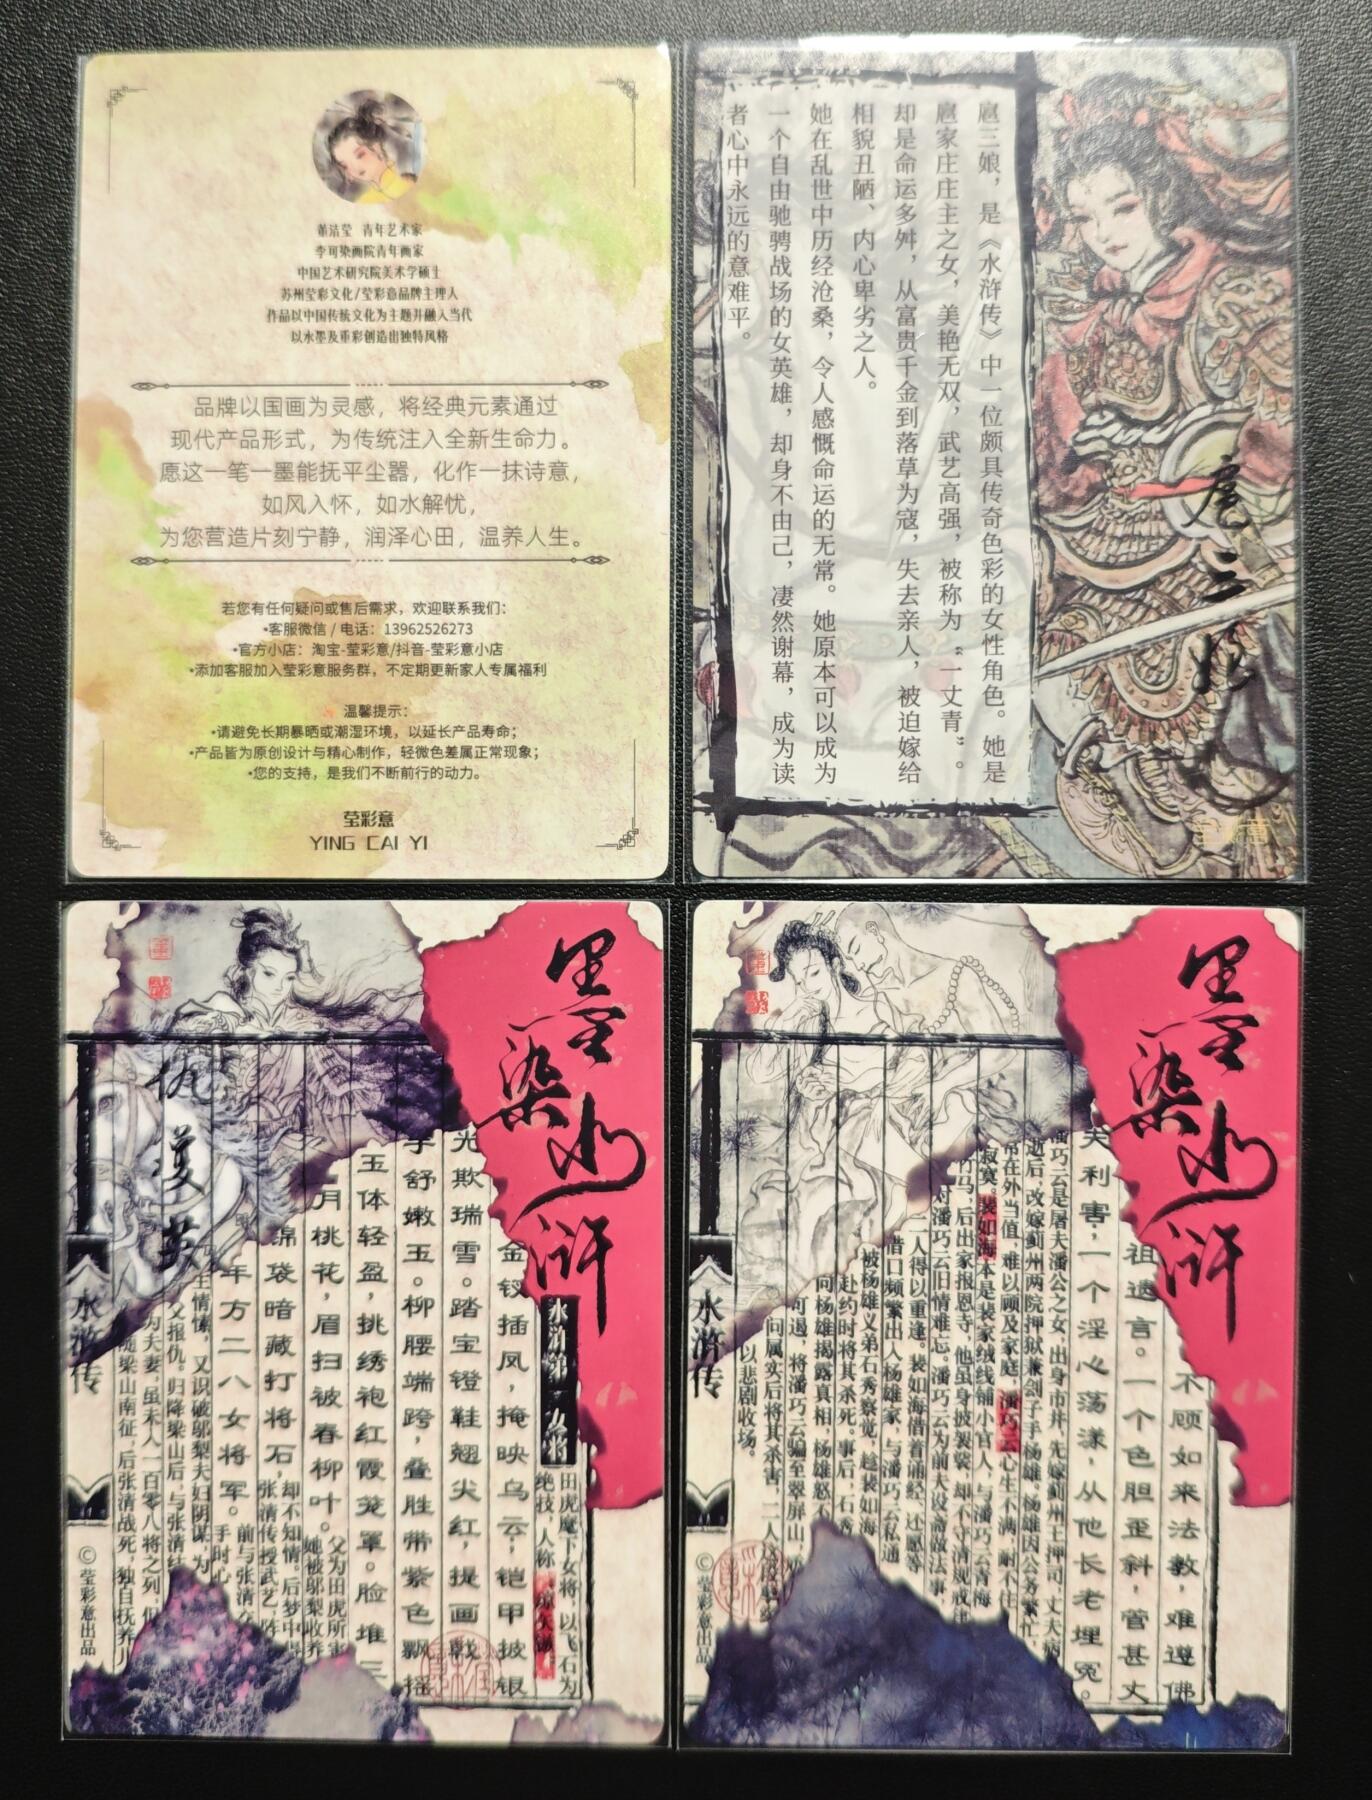 董洁莹 青年艺术家
李可染画院青年画家
中国艺术研究院美术学硕士
苏州莹彩文化/莹彩意品牌主理人
作品以中国传统文化为主题并融入当代
以水墨及重彩创造出独特风格
品牌以国画为灵感，将经典元素通过
现代产品形式，为传统注入全新生命力。
愿这一笔一墨能抚平尘嚣，化作一抹诗意，
如风入怀，如水解忧，
为您营造片刻宁静，润泽心田，温养人生。
若您有任何疑问或售后需求，欢迎联系我们：
•客服微信 / 电话：13962526273
•官方小店：淘宝-莹彩意/抖音-莹彩意小店
•添加客服加入莹彩意服务群，不定期更新家人专属福利
温馨提示：
•请避免长期暴晒或潮湿环境，以延长产品寿命；
•产品皆为原创设计与精心制作，轻微色差属正常现象；
•您的支持，是我们不断前行的动力。
莹彩意
YING CAI YI
扈三娘
扈三娘，是《水浒传》中一位颇具传奇色彩的女性角色。她是
扈家庄庄主之女，美艳无双，武艺高强，被称为“一丈青”。
却是命运多舛，从富贵千金到落草为寇，失去亲人，被迫嫁给
相貌丑陋、内心卑劣之人。
她在乱世中历经沧桑，令人感慨命运的无常。她原本可以成为
一个自由驰骋战场的女英雄，却身不由己，凄然谢幕，成为读
者心中永远的意难平。
墨染水浒
田虎麾下女将，以飞石为
绝技，人称
金钗插凤，掩映乌云，铠甲披银
光欺瑞雪。踏宝镫鞋翘尖红，提画戟
手舒嫩玉。柳腰端跨，叠胜带紫色飘摇
玉体轻盈，挑绣袍红霞笼罩。脸堆三
月桃花，眉扫被春柳叶。
锦袋暗藏打将石，
年方二八女将军。
父为田虎所害
她被邬梨收养
却不知情。后梦中
张清传授武艺
前与张清
手时心
生情愫，又识破邬梨夫妇阴谋，为
父报仇。归降梁山后，与张清结
为夫妻，虽未入一百零八将之列，但
随梁山南征，后张清战死，独自抚养儿
水浒传
©莹彩意出品
墨染水浒
不顾如来法教，难遵佛
祖遗言。一个色胆歪斜，管甚丈
夫利害；一个淫心荡漾，从他长老埋冤。
潘巧云是屠夫潘公之女，出身市井，先嫁蓟州王押司，丈夫病
逝后，改嫁蓟州两院押狱兼刽子手杨雄。杨雄因公务繁忙，
常在外当值，难以顾及家庭，潘巧云心生不满，耐不住
寂寞。裴如海本是裴家绒线铺小官人，与潘巧云青梅
竹马，后出家报恩寺，他虽身披袈裟，却不守清规戒律
对潘巧云旧情难忘。潘巧云为前夫设斋做法事，
二人得以重逢。裴如海借着诵经、还愿等
借口频繁出入杨雄家，与潘巧云私通
被杨雄义弟石秀察觉，趁裴如海
赴约时将其杀死。事后，石秀
向杨雄揭露真相，杨雄怒不
可遏，将潘巧云骗至翠屏山，
问属实后将其杀害，二人
以悲剧收场。
水浒传
©莹彩意出品